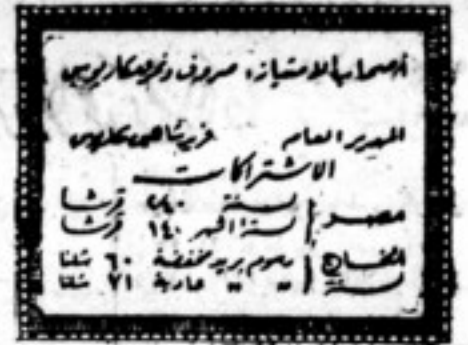 أصحاب الامتياز: صروف ونمر ومكاريوس
المدير العام
الاشتراكات
مصر لسنة ٢٤٠ قرشا
لستة أشهر ١٤٠ قرشا
الخارج برسوم بريد مخفضة ٦٠ شلنا
لسنة " " عادية ٧١ شلنا